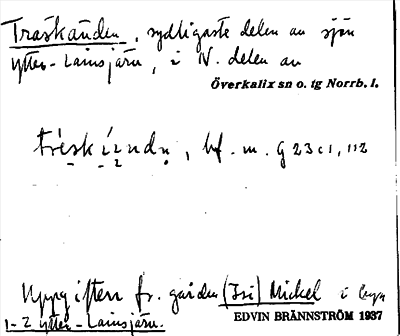 Träskänden, sydligaste delen av sjön
Ytter-Lainsjärv, i N. delen av
Överkalix sn o. tg Norrb. l.
bf. m. G 23 c 1, 112
Uppgiften fr. gården (Isi) Mickel i byn
1-2 Ytter-Lainsjärv.
EDVIN BRÄNNSTRÖM 1937